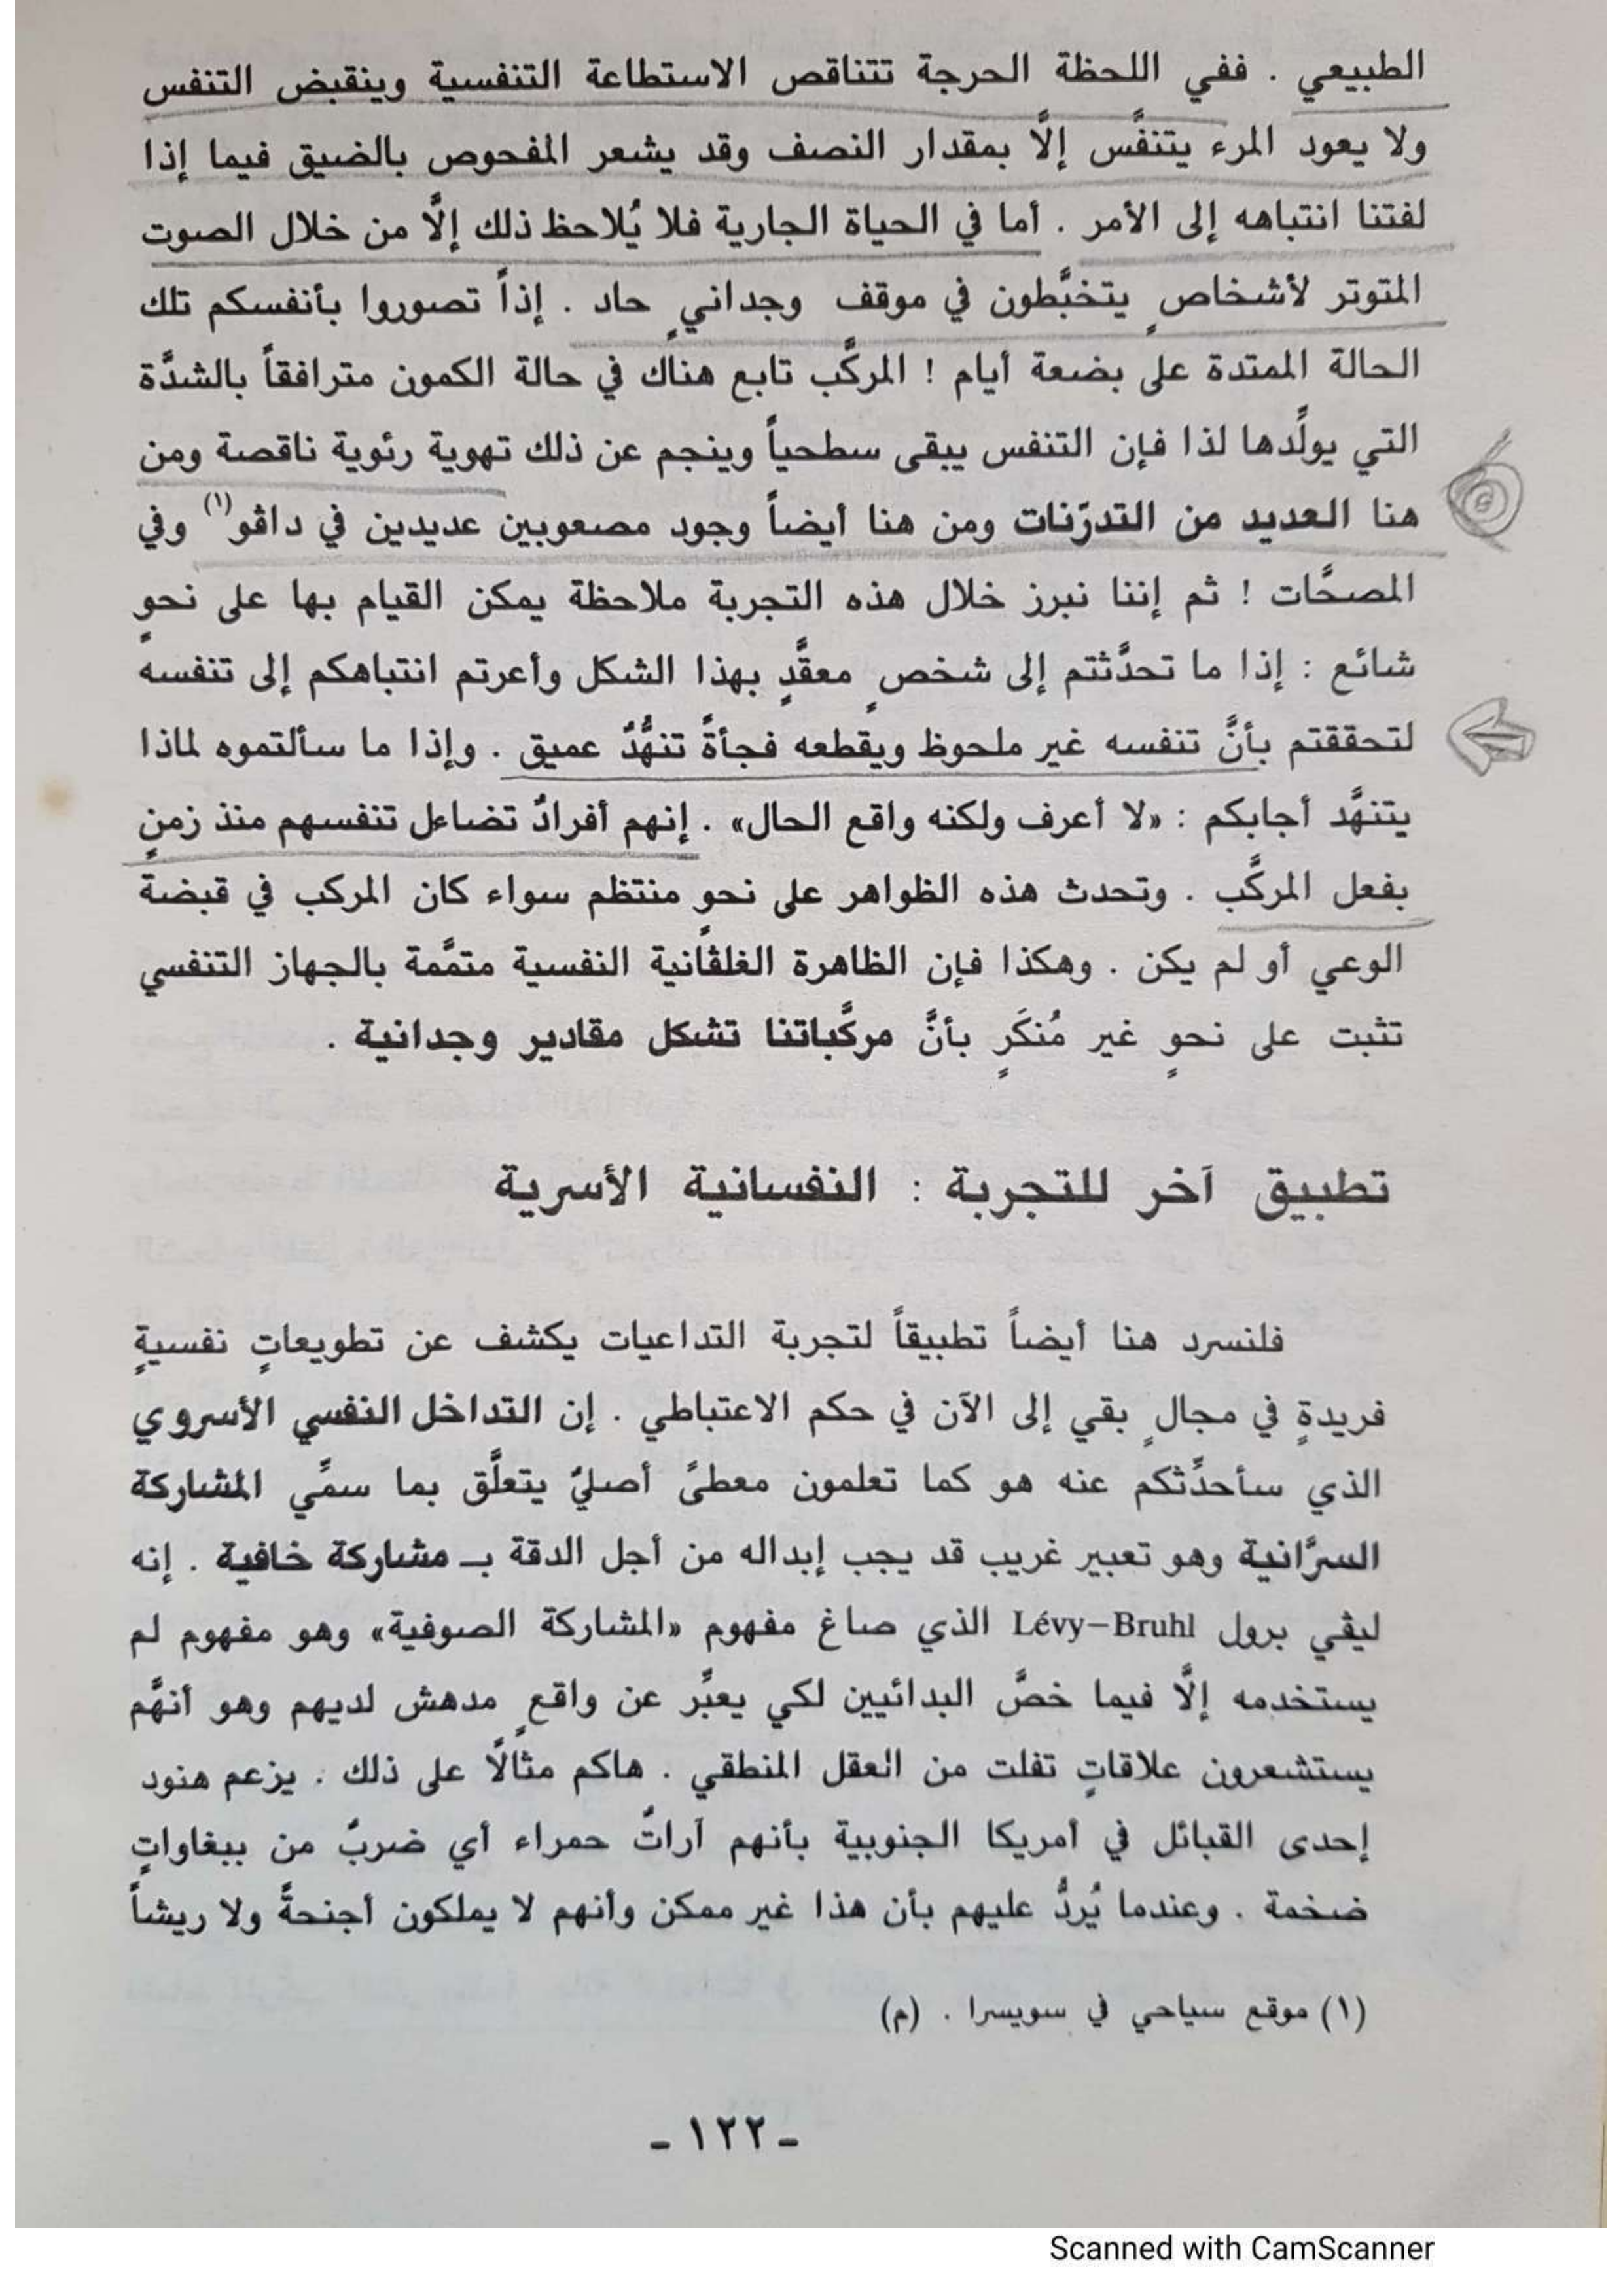 الطبيعي . ففي اللحظة الحرجة تتناقص الاستطاعة التنفسية وينقبض التنفس
ولا يعود المرء يتنفَّس إلَّا بمقدار النصف وقد يشعر المفحوص بالضيق فيما إذا
لفتنا انتباهه إلى الأمر . أما في الحياة الجارية فلا يُلاحظ ذلك إلَّا من خلال الصوت
المتوتر لأشخاصٍ يتخبَّطون في موقف وجدانيٍ حاد . إذاً تصوروا بأنفسكم تلك
الحالة الممتدة على بضعة أيام ! المركَّب تابع هناك في حالة الكمون مترافقاً بالشدَّة
التي يولِّدها لذا فإن التنفس يبقى سطحياً وينجم عن ذلك تهوية رئوية ناقصة ومن
هنا العديد من التدرّنات ومن هنا أيضاً وجود مصعوبين عديدين في داڤو(١) وفي
المصحَّات ! ثم إننا نبرز خلال هذه التجربة ملاحظة يمكن القيام بها على نحوٍ
شائع : إذا ما تحدَّثتم إلى شخصٍ معقَّدٍ بهذا الشكل وأعرتم انتباهكم إلى تنفسه
لتحققتم بأنَّ تنفسه غير ملحوظ ويقطعه فجأةً تنهُّدٌ عميق . وإذا ما سألتموه لماذا
يتنهَّد أجابكم : «لا أعرف ولكنه واقع الحال» . إنهم أفرادٌ تضاءل تنفسهم منذ زمنٍ
بفعل المركَّب . وتحدث هذه الظواهر على نحوٍ منتظم سواء كان المركب في قبضة
الوعي أو لم يكن . وهكذا فإن الظاهرة الغلڤانية النفسية متمَّمة بالجهاز التنفسي
تثبت على نحوٍ غير مُنكَرٍ بأنَّ مركَّباتنا تشكل مقادير وجدانية .
تطبيق آخر للتجربة : النفسانية الأسرية
فلنسرد هنا أيضاً تطبيقاً لتجربة التداعيات يكشف عن تطويعاتٍ نفسيةٍ
فريدةٍ في مجالٍ بقي إلى الآن في حكم الاعتباطي . إن التداخل النفسي الأسروي
الذي سأحدِّثكم عنه هو كما تعلمون معطىً أصليٌ يتعلَّق بما سمِّي المشاركة
السرَّانية وهو تعبير غريب قد يجب إبداله من أجل الدقة بـ مشاركة خافية . إنه
ليڤي برول Lévy–Bruhl الذي صاغ مفهوم «المشاركة الصوفية» وهو مفهوم لم
يستخدمه إلَّا فيما خصَّ البدائيين لكي يعبِّر عن واقعٍ مدهش لديهم وهو أنهَّم
يستشعرون علاقاتٍ تفلت من العقل المنطقي . هاكم مثالًا على ذلك . يزعم هنود
إحدى القبائل في أمريكا الجنوبية بأنهم آراتٌ حمراء أي ضربٌ من ببغاواتٍ
ضخمة . وعندما يُردُّ عليهم بأن هذا غير ممكن وأنهم لا يملكون أجنحةً ولا ريشاً
(١) موقع سياحي في سويسرا . (م)
ـ ١٢٢ ـ
Scanned with CamScanner